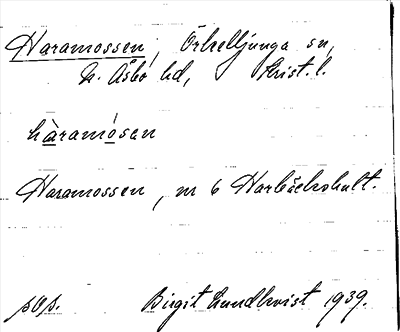 Haramossen, Örkelljunga sn,
N. Åsbo hd, Krist. l.
hàramósan
Haramossen, nr 6 Harbäckshult.
pop. Birgit Lundkvist 1939.